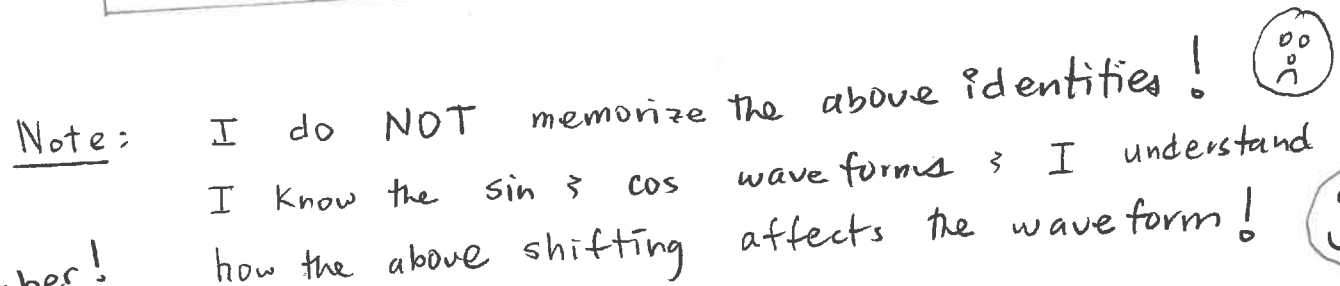 Note: I do NOT memorize the above identities!
I know the sin & cos waveforms & I understand
how the above shifting affects the waveform!